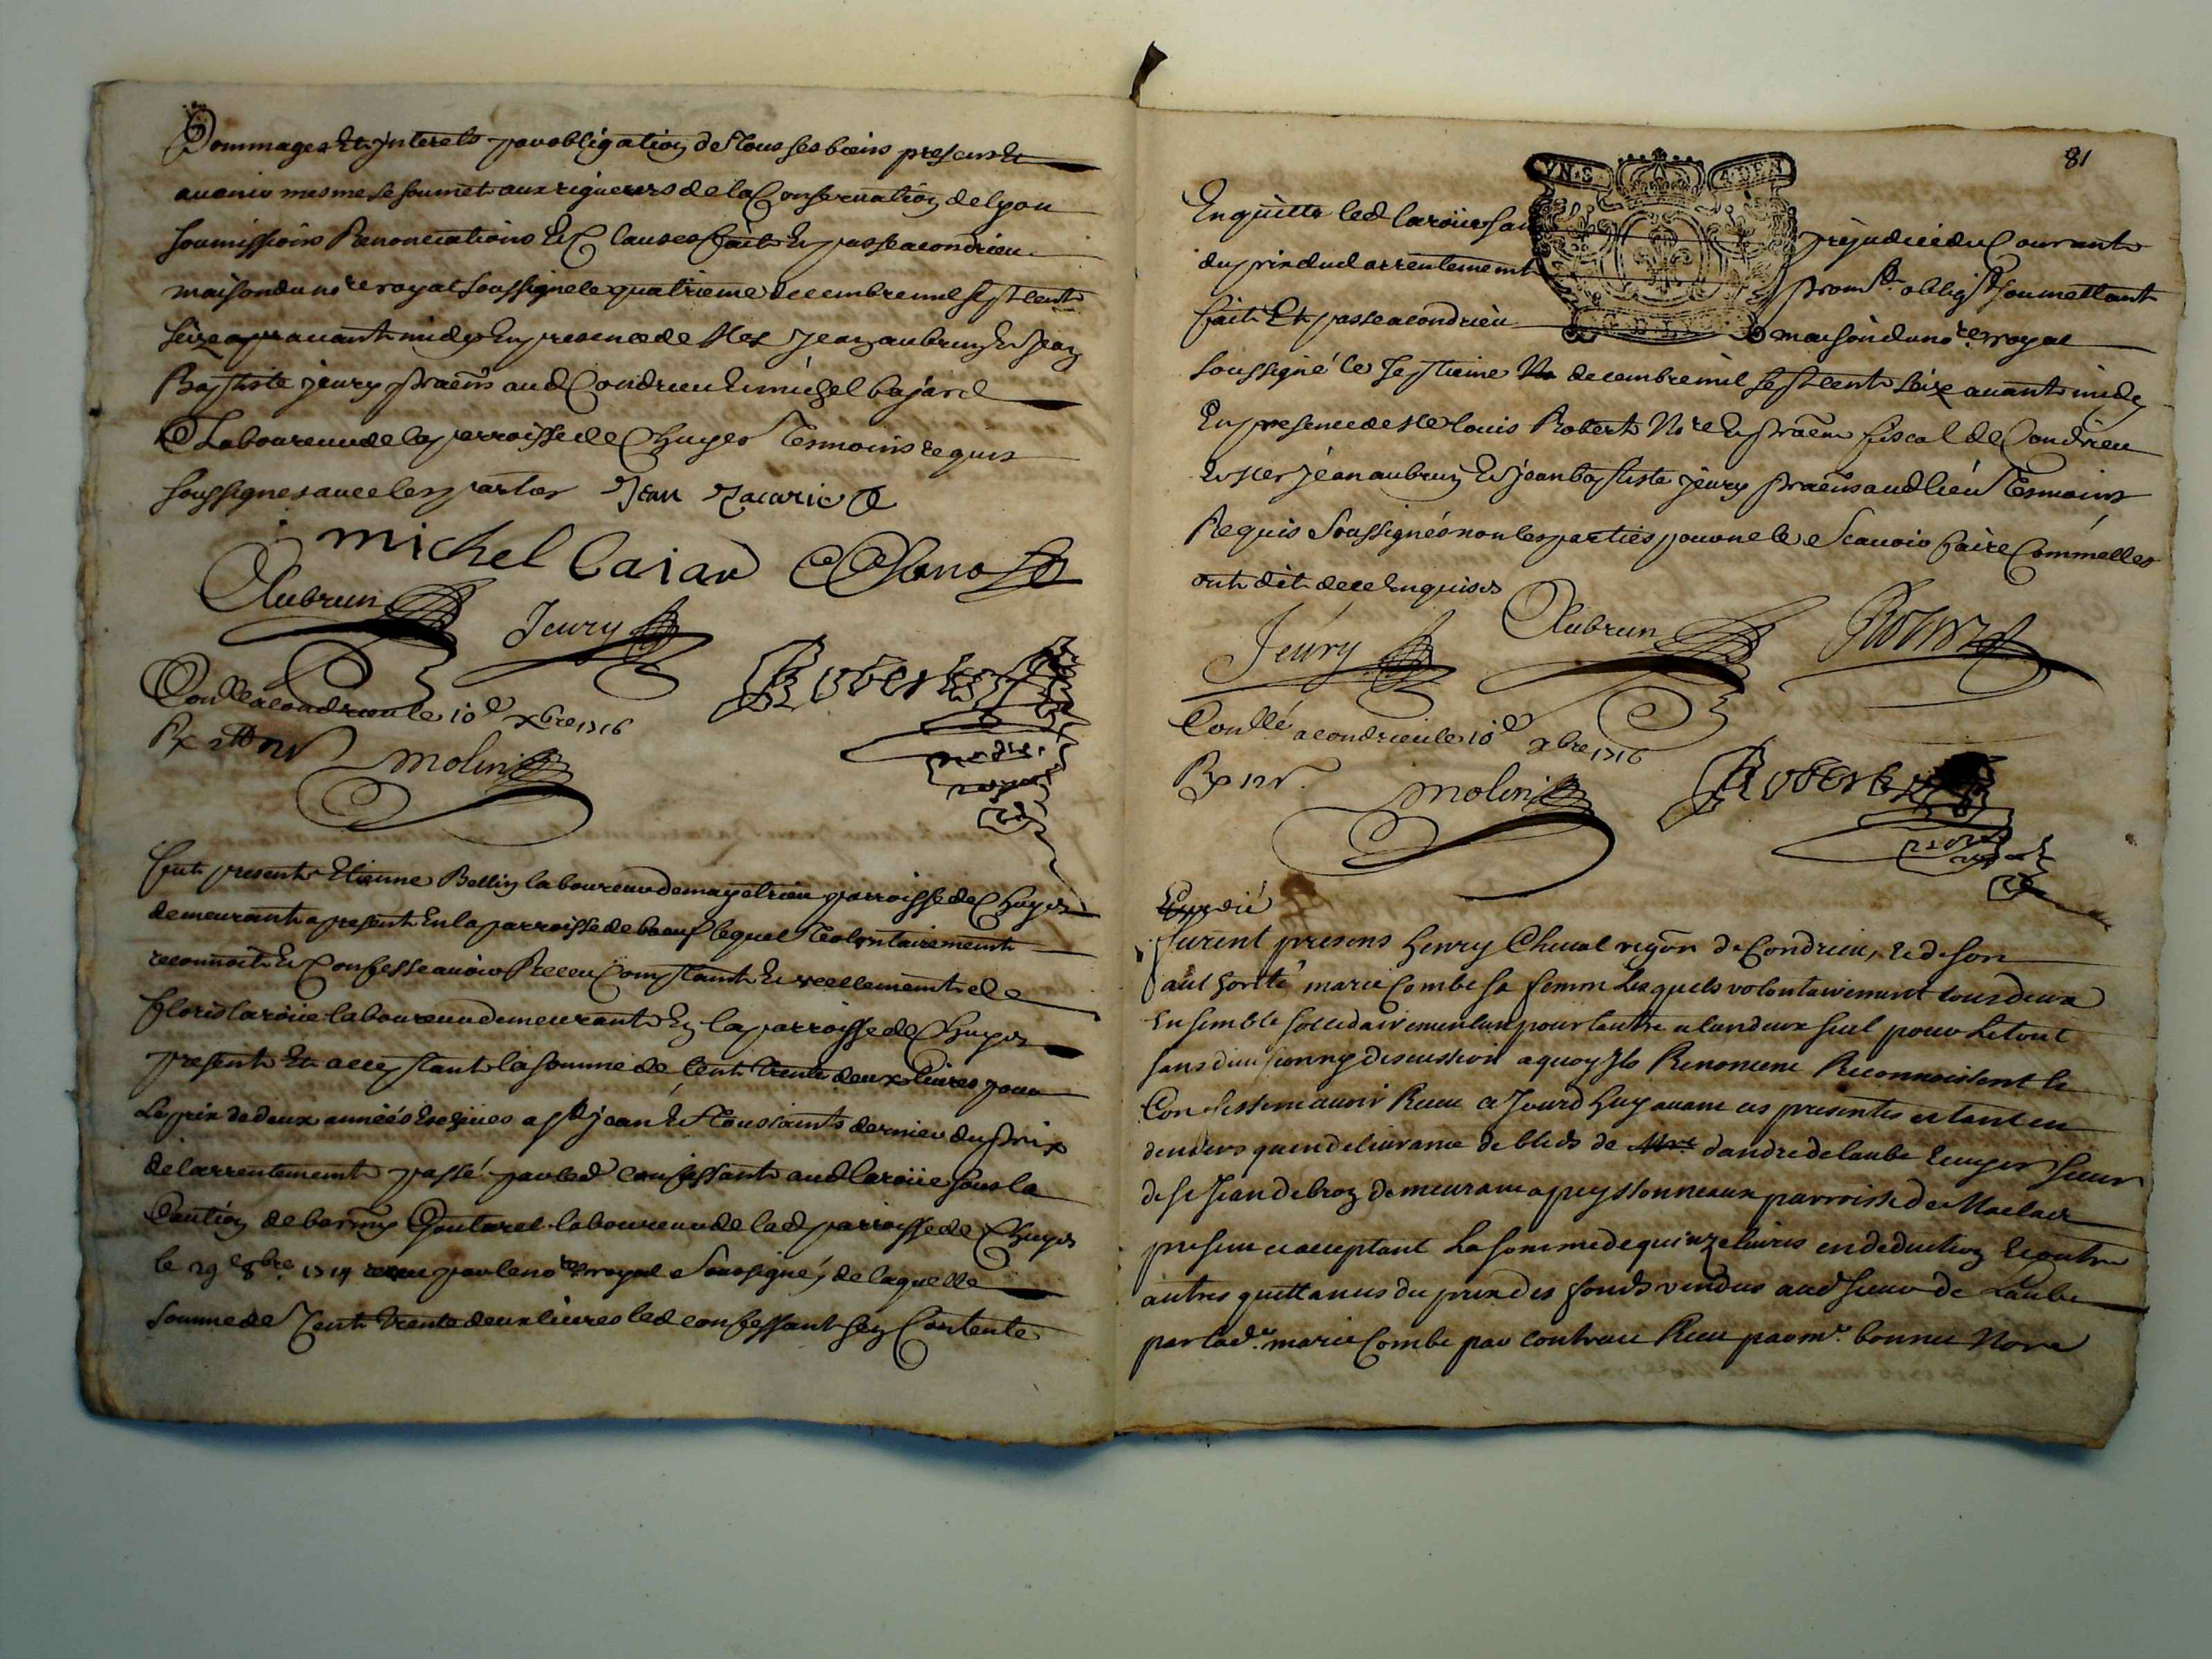 Dommages Et jnterets par obligation de Tous ses biens presens Et
avenir mesme se soumet aux rigueurs de la Conservation de lyon
soumissions Renonciations Et Clauses fait Et passe a condrieu
maison du no.re royal soussigne le quatrieme decembre mil sept cent
seize avant midy En presence de Mes Jean aubrun Et Jean
Baptiste jeury praens aud Condrieu Et michel bajard
Laboureur de la parroisse de Chuyes Temoins requis
soussignes avec les parties Jean Zacarie
michel baiar
Aubrun Jeury Robert
Conllé a condrieu le 10e xbre 1716
Rx molin
fut present Etienne Bellin laboureur de mayolrieu parroisse de Chuyes
demeurant a present En la parroisse de boeuf lequel Volontairement
reconnoit Et Confesse avoir Receu Comptant Et reellement de
floris laroüe laboureur demeurant En la parroisse de Chuyes
present Et acceptant la somme de Cent trente deux livres pour
Le prix de deux années Echeues a st jean Et Toussaints dernier du prix
de larrentement passé par led confessant aud laroüe sous la
Caution de Goutarel laboureur de lad parroisse de Chuyes
le 29e 8bre 1714 receu par le no.re royal Soussigné, de laquelle
somme de Cent trente deux livres led confessant sen Contente
81
Enquitte led laroüe sans prejudice du Courant
du prix dud arrentement prom.t oblig.t soumettant
fait Et passe a condrieu maison du no.re royal
soussigné le septieme decembre mil sept cent seize avant midy
En presence de Me louis Robert No.re Et praem fiscal de Condrieu
Et Mes jean aubrun Et jean baptiste jeury praens aud lieu Temoins
Requis Soussignés non les parties pour ne le Scavoir faire Comme elles
ont dit de ce Enquises
Jeury Aubrun Robert
Conllé a condrieu le 10e xbre 1716
Rx 12s. molin Robert
Expedié
furent presens henry Cheval vigon de Condrieu, Et de son
authorité marie Combe sa femme Lesquels volontairement tous deux
Ensemble sollidairement lun pour lautre et lun deux seul pour Le tout
sans division ny discussion a quoy Ils Renoncent Reconnoissent et
Confessent avoir Receu ce Jourdhuy avant ces presentes et tant en
deniers quen delivrance de bleds de dandre de laube Ecuyer sieur
de St Jean de bron demeurant a peyssonneaux parroisse de Maclas
present et acceptant La somme de quinze livres en deduction Et outre
autres quittances du prix des fonds vendus aud sieur de Laube
par lad. marie Combe par contract Receu par m.e bonnet No.re